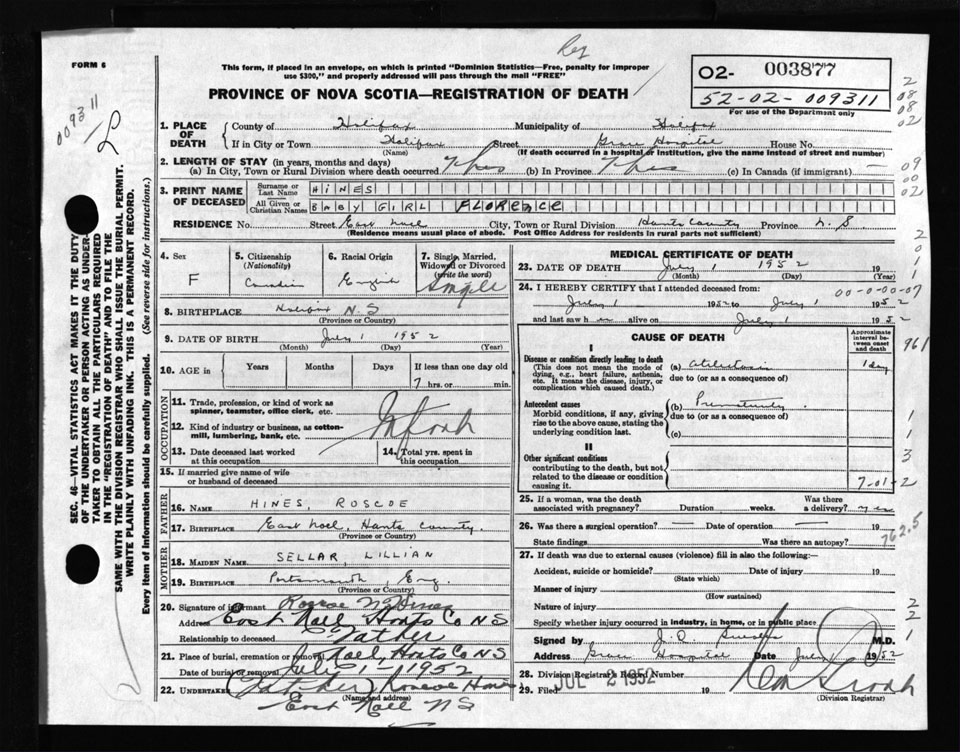 Reg
FORM 6
This form, if placed in an envelope, on which is printed "Dominion Statistics—Free, penalty for improper
use $300," and properly addressed will pass through the mail "FREE"
PROVINCE OF NOVA SCOTIA—REGISTRATION OF DEATH
O2- 003877
52-02-009311
For use of the Department only
009311
SEC. 46—VITAL STATISTICS ACT MAKES IT THE DUTY
OF THE UNDERTAKER OR PERSON ACTING AS UNDER-
TAKER TO OBTAIN ALL THE PARTICULARS REQUIRED
IN THE "REGISTRATION OF DEATH" AND TO FILE THE
SAME WITH THE DIVISION REGISTRAR WHO SHALL ISSUE THE BURIAL PERMIT.
WRITE PLAINLY WITH UNFADING INK. THIS IS A PERMANENT RECORD.
Every item of Information should be carefully supplied. (See reverse side for instructions.)
1. PLACE OF DEATH
County of Halifax Municipality of Halifax
If in City or Town Halifax Street Grace Hospital House No.
(Name) (If death occurred in a hospital or institution, give the name instead of street and number)
2. LENGTH OF STAY (in years, months and days)
(a) In City, Town or Rural Division where death occurred 7 hrs (b) In Province 7 hrs (c) In Canada (if immigrant) —
3. PRINT NAME OF DECEASED
Surname or Last Name HINES
All Given or Christian Names BABY GIRL FLORENCE
RESIDENCE No. Street East Noel City, Town or Rural Division Hants County Province N.S.
(Residence means usual place of abode. Post Office Address for residents in rural parts not sufficient)
4. Sex F
5. Citizenship (Nationality) Canadian
6. Racial Origin English
7. Single, Married, Widowed or Divorced (write the word) Single
8. BIRTHPLACE Halifax N.S
(Province or Country)
9. DATE OF BIRTH July 1 1952
(Month) (Day) (Year)
10. AGE in Years Months Days If less than one day old
7 hrs. or min.
OCCUPATION
11. Trade, profession, or kind of work as
spinner, teamster, office clerk, etc.
12. Kind of industry or business, as cotton-
mill, lumbering, bank, etc.
13. Date deceased last worked
at this occupation
14. Total yrs. spent in
this occupation
15. If married give name of wife
or husband of deceased
FATHER
16. NAME HINES, ROSCOE
17. BIRTHPLACE East Noel, Hants County.
(Province or Country)
MOTHER
18. MAIDEN NAME SELLAR, LILLIAN
19. BIRTHPLACE Portsmouth, Eng.
(Province or Country)
20. Signature of informant Roscoe
Address East Noel Hants Co NS
Relationship to deceased Father
21. Place of burial, cremation or removal Noel Hants Co NS
Date of burial or removal July 1 - 1952
22. UNDERTAKER (Father) Roscoe
(Name and address)
East Noel NS
MEDICAL CERTIFICATE OF DEATH
23. DATE OF DEATH July 1 1952 19
(Month) (Day) (Year)
24. I HEREBY CERTIFY that I attended deceased from:
00-0-00-07
July 1 1952 to July 1 1952
and last saw h er alive on July 1 1952
CAUSE OF DEATH
Approximate interval between onset and death
I
Disease or condition directly leading to death
(This does not mean the mode of
dying, e.g., heart failure, asthenia,
etc. It means the disease, injury, or
complication which caused death.)
(a) Atelectasis 1 day
due to (or as a consequence of)
Antecedent causes
Morbid conditions, if any, giving
rise to the above cause, stating the
underlying condition last.
(b) Prematurity
due to (or as a consequence of)
(c)
II
Other significant conditions
contributing to the death, but not
related to the disease or condition
causing it.
7-01-2
25. If a woman, was the death
associated with pregnancy? Duration weeks. Was there a delivery? yes
26. Was there a surgical operation? — Date of operation — 19
State findings Was there an autopsy?
762.5
27. If death was due to external causes (violence) fill in also the following:—
Accident, suicide or homicide? Date of injury 19
(State which)
Manner of injury
(How sustained)
Nature of injury
Specify whether injury occurred in industry, in home, or in public place
Signed by M.D.
Address Grace Hospital Date July 1952
28. Division Registrar's Record Number
29. Filed JUL 2 1952 19
(Division Registrar)
2
08
08
02
09
00
02
2
0
1
1
961
1
1
3
2
2
1